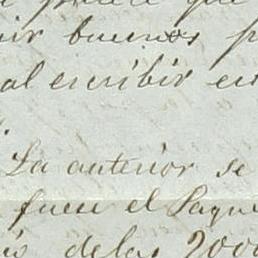 que
buenos p
al escribir es
La anterior se
fuese el Paque
delas 2000